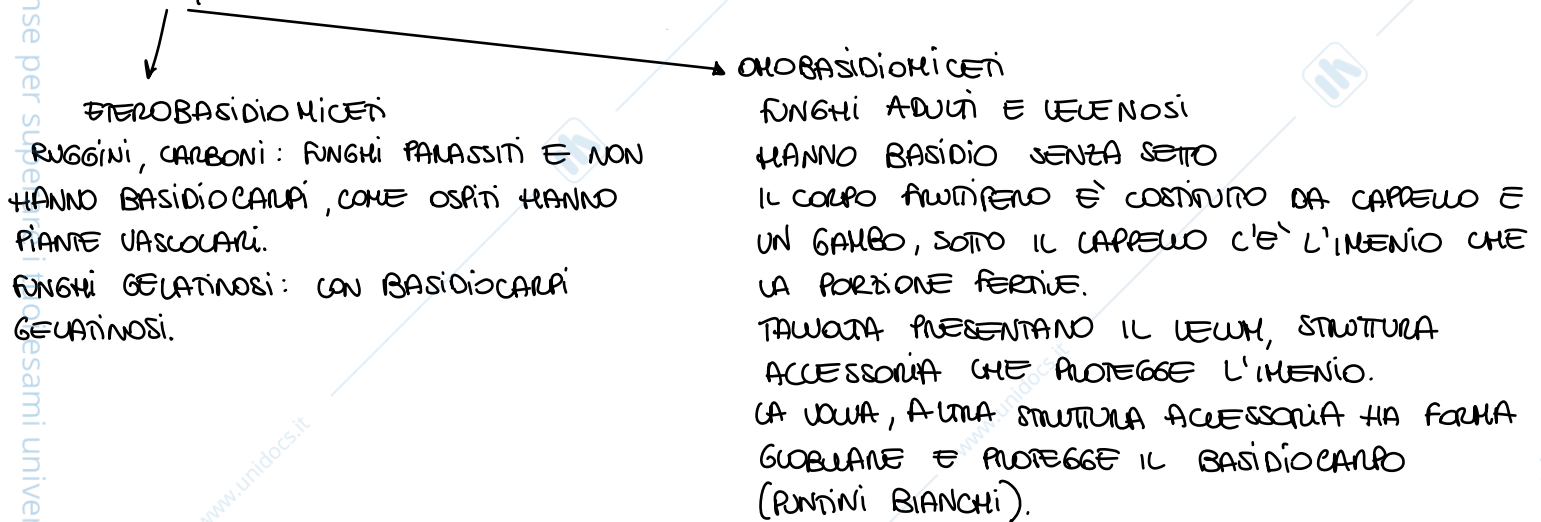 ETEROBASIDIOMICETI
RUGGINI, CARBONI: FUNGHI PARASSITI E NON
HANNO BASIDIOCARPI, COME OSPITI HANNO
PIANTE VASCOLARI.
FUNGHI GELATINOSI: CON BASIDIOCARPI
GELATINOSI.
OMOBASIDIOMICETI
FUNGHI ADULTI E VELENOSI
HANNO BASIDIO SENZA SETTO
IL CORPO FRUTTIFERO E' COSTITUITO DA CAPPELLO E
UN GAMBO, SOTTO IL CAPPELLO C'E' L'IMENIO CHE
LA PORZIONE FERTILE.
TALVOLTA PRESENTANO IL VELUM, STRUTTURA
ACCESSORIA CHE PROTEGGE L'IMENIO.
LA VOLVA, ALTRA STRUTTURA ACCESSORIA HA FORMA
GLOBULARE E PROTEGGE IL BASIDIOCARPO
(PUNTINI BIANCHI).
www.unidocs.it
www.unidocs.it